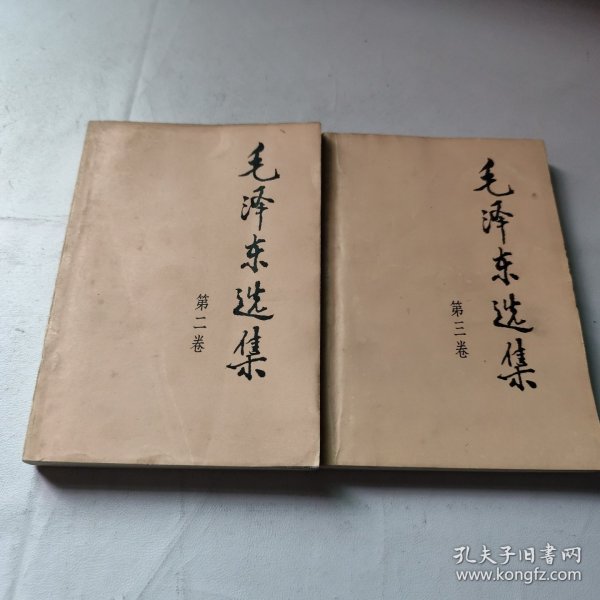 毛泽东选集
第二卷
毛泽东选集
第三卷
孔夫子旧书网
www.kongfz.com